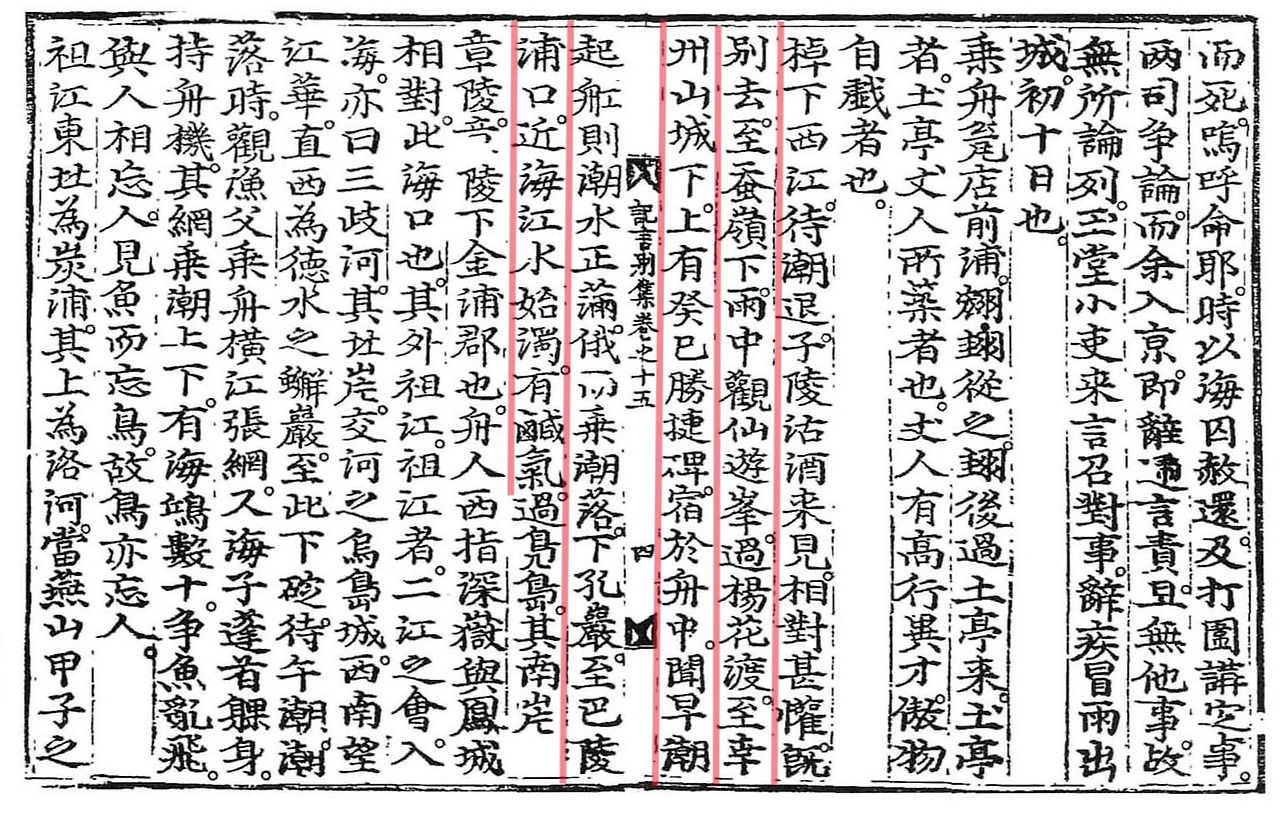 而死嗚呼命耶時以海囚赦還及打圍講定事
两司争論而余入京即辭遞言責且無他事故
無所論列玉堂小吏来言召對事辭疾冒雨出
城初十日也
乗舟瓮店前浦翅翅從之翅後過土亭来土亭
者土亭丈人所築者也丈人有高行異才傲物
自戱者也
棹下西江待潮退子陵沽酒来見相對甚懽旣
别去至蚕嶺下雨中觀仙遊峯過楊花渡至幸
州山城下上有癸巳勝捷碑宿於舟中聞早潮
記言別集卷之十五 四
起舡則潮水正滿俄而乗潮落下孔巖至巴陵
浦口近海江水始濁有鹹氣過鳧島其南岸
章陵章陵下金浦郡也舟人西指深嶽與鳳城
相對此海口也其外祖江祖江者二江之會入
海亦曰三歧河其北岸交河之烏島城西南望
江華直西為德水之蠏巖至此下碇待午潮潮
落時觀漁父乗舟橫江張網又海子蓬首躶身
持舟機其網乗潮上下有海鴻數十争魚亂飛
與人相忘人見魚而忘鳥故鳥亦忘人
祖江東北為炭浦其上為洛河當燕山甲子之